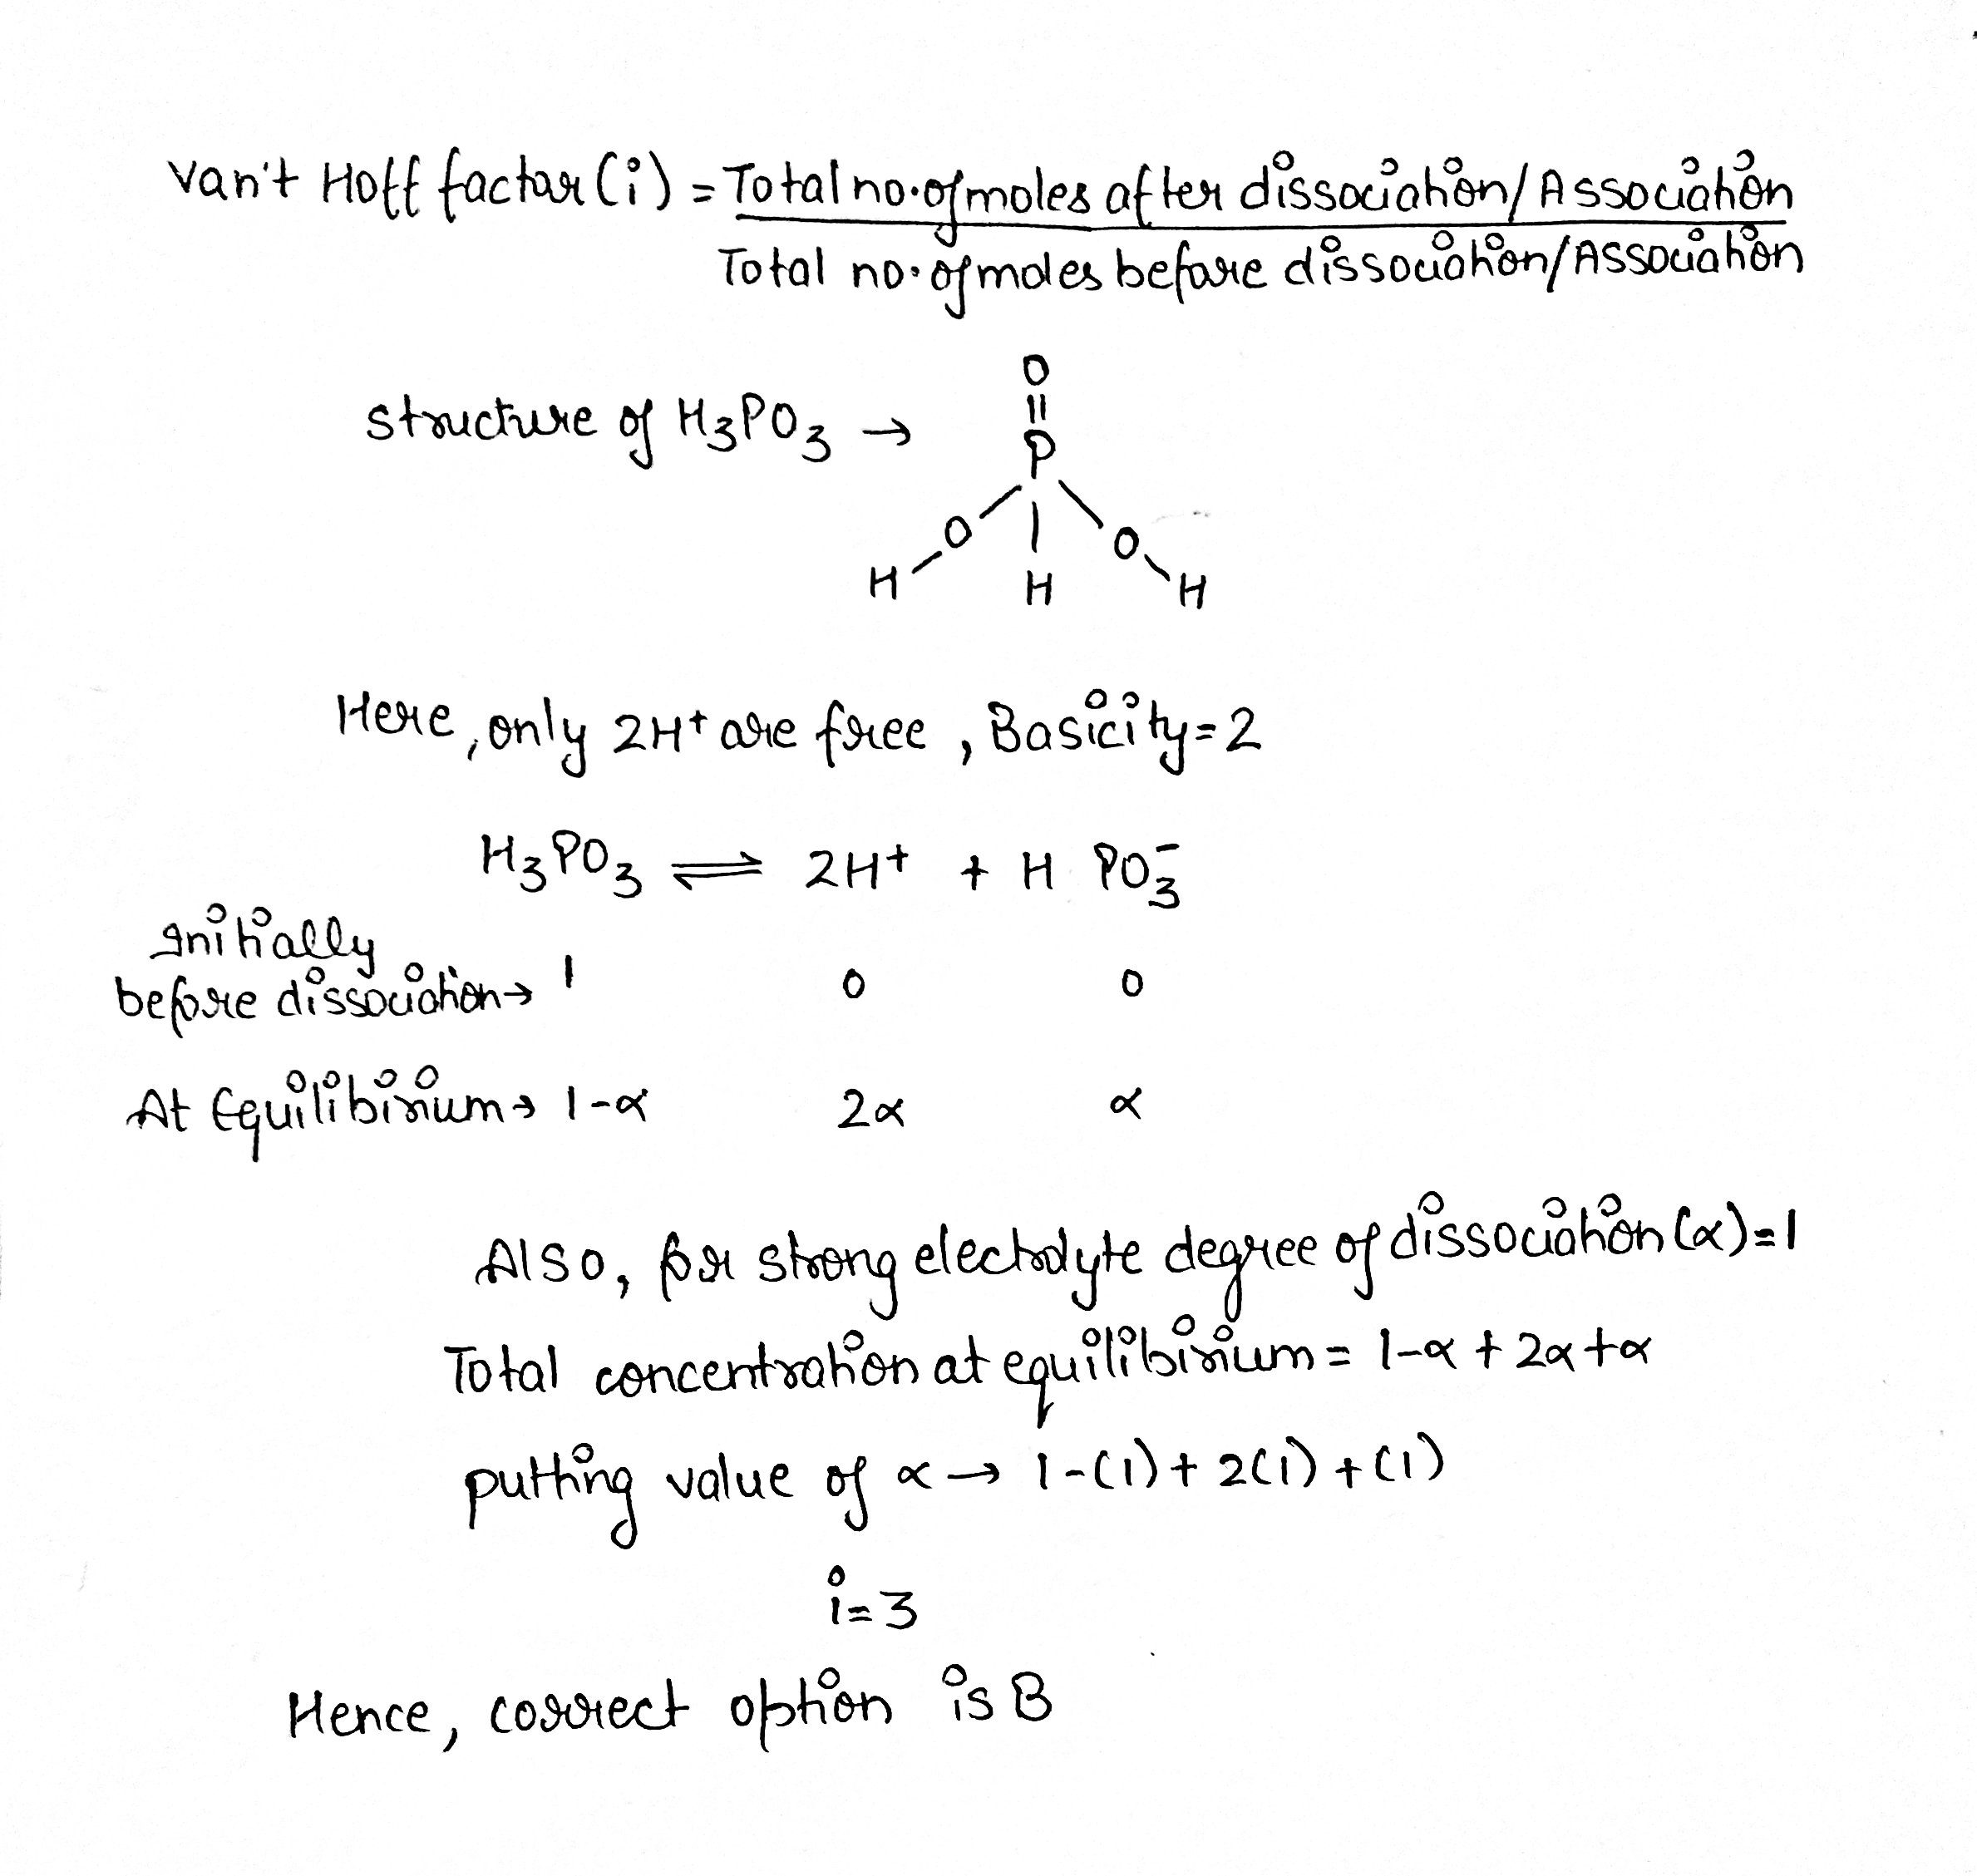 Van't Hoff factor (i) = Total no. of moles after dissociation/Association
Total no. of moles before dissociation/Association
O
structure of H3PO3 → P
O O
H H H
Here, only 2H+ are free, Basicity=2
H3PO3 ⇌ 2H+ + H PO3-
Initially
before dissociation→ 1 0 0
At Equilibirium→ 1-α 2α α
Also, for strong electrolyte degree of dissociation (α)=1
Total concentration at equilibirium = 1-α + 2α+α
putting value of α → 1-(1)+ 2(1) +(1)
i=3
Hence, correct option is B